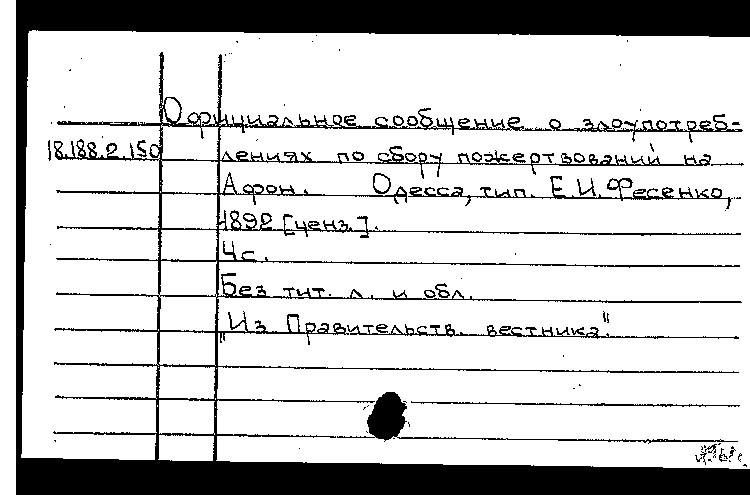 Официальное сообщение о злоупотреб-
18.188.2.150 лениях по сбору пожертвований на
Афон. Одесса, тип. Е.И. Фесенко,
1892 [ценз.].
4 с.
Без тит. л. и обл.
„Из Правительств. вестника".